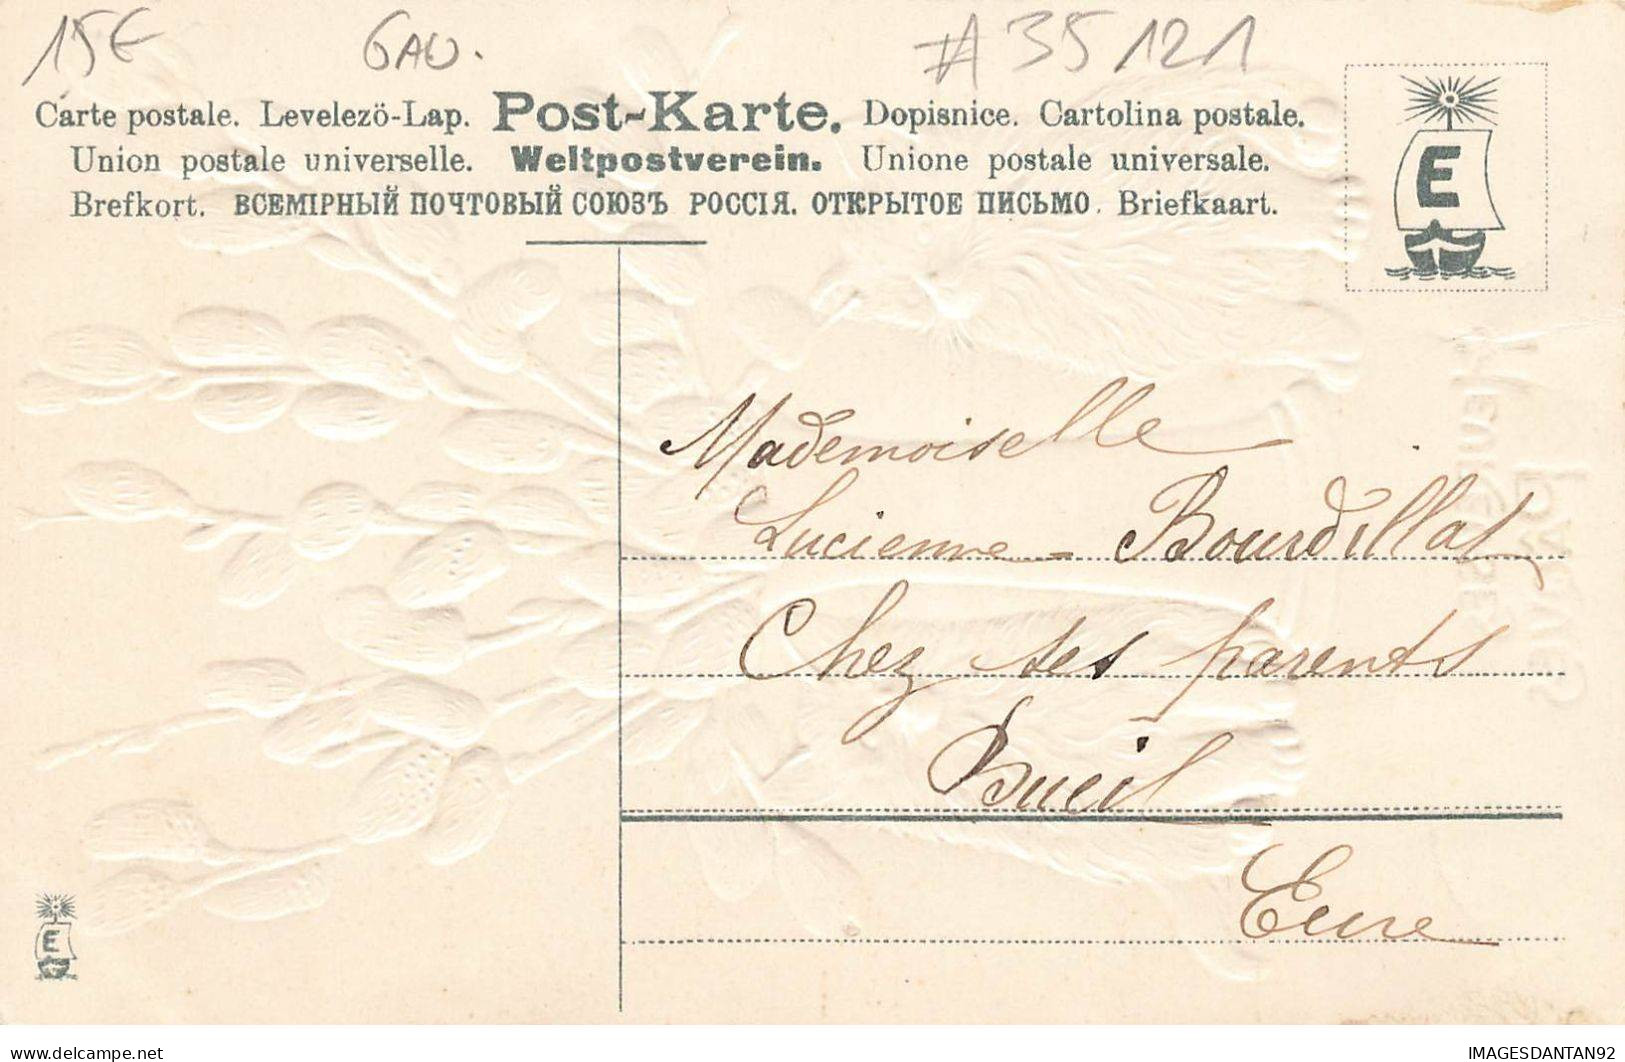 15€ GAU. #35121
Carte postale. Levelezö-Lap. Post-Karte. Dopisnice. Cartolina postale.
Union postale universelle. Weltpostverein. Unione postale universale.
Brefkort. ВСЕМІРНЫЙ ПОЧТОВЫЙ СОЮЗЪ РОССІЯ. ОТКРЫТОЕ ПИСЬМО. Briefkaart.
E
Mademoiselle
Lucienne - Bourdillat
Chez ses parents
Bueil
Eure
E
IMAGESDANTAN92
delcampe.net